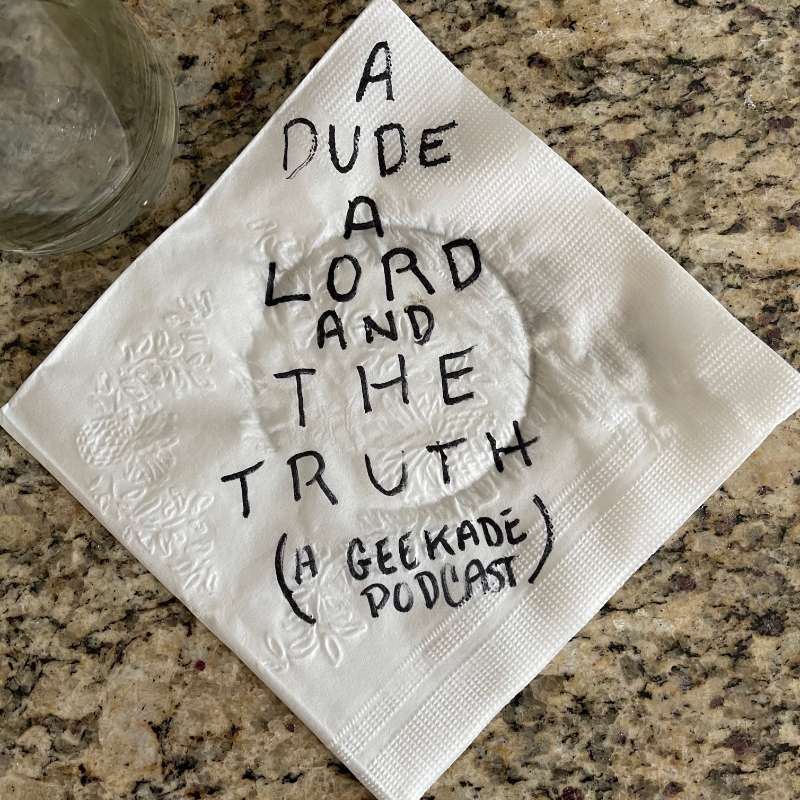 A
DUDE
A
LORD
AND
THE
TRUTH
(A GEEKADE
PODCAST)